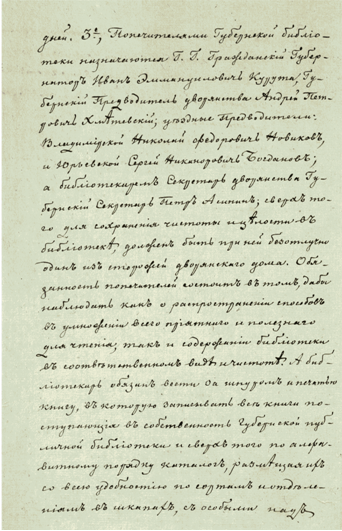 дней. 3е, Попечителями Губернской библіо-
теки назначаются Г. Г. Гражданскій Губер-
наторъ Иванъ Эммануиловичъ Курута, Гу-
бернскій Предводитель дворянства Андрей Пет-
ровичъ Хметевскій; уѣздные Предводители:
Владимірской Николай Федоровичъ Новиковъ,
и Юрьевской Сергей Никаноровичъ Богдановъ;
а библіотекаремъ Секретарь дворянства Гу-
бернскій Секретарь Петръ Асинъ; сверхъ то-
го для сохраненія чистоты и цѣлости въ
библіотекѣ, долженъ быть при ней безотлучно
одинъ изъ сторожей дворянскаго дома. Обя-
занность попечителей состоитъ въ томъ, дабы
наблюдать какъ о распространеніи способовъ
въ умноженіи всего пріятнаго и полезнаго
для чтенія; такъ и содержаніи библіотеки
въ соотвѣтственномъ видѣ и чистотѣ. А биб-
ліотекарь обязанъ вести за шнуромъ и печатью
книгу, въ которую записывать всѣ книги по-
ступающія въ собственность Губернской пуб-
личной библіотеки и сверхъ того по алфа-
витному порядку каталогъ, размѣщая ихъ
со всею удобностію по сортамъ и отдѣле-
ніямъ въ шкапахъ, съ особыми надъ